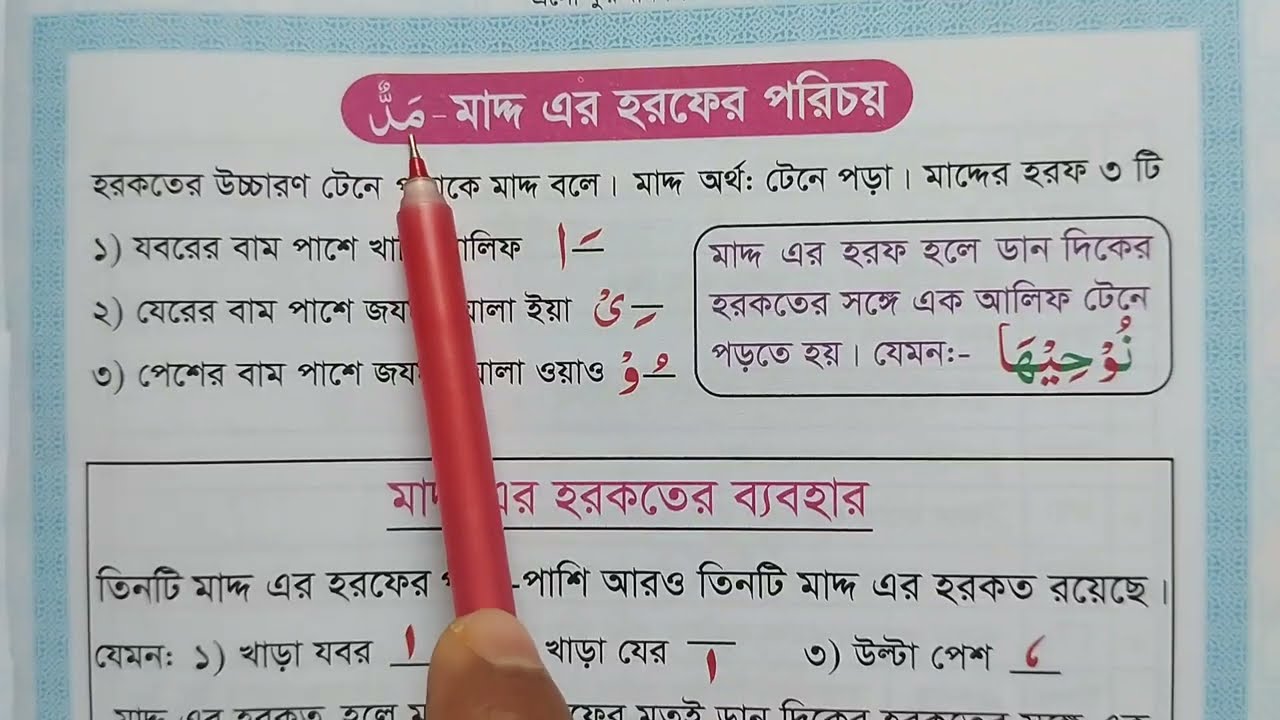 مَدٌّ - মাদ্দ এর হরফের পরিচয়
হরকতের উচ্চারণ টেনে মাদ্দ বলে। মাদ্দ অর্থ: টেনে পড়া। মাদ্দের হরফ ৩ টি
১) যবরের বাম পাশে ـَ ا
২) যেরের বাম পাশে ইয়া ـِ ىْ
৩) পেশের বাম পাশে ওয়াও ـُ وْ
মাদ্দ এর হরফ হলে ডান দিকের
হরকতের সঙ্গে এক আলিফ টেনে
পড়তে হয়। যেমন:- نُوْحِيْهَا
এর হরকতের ব্যবহার
তিনটি মাদ্দ এর হরফের -পাশি আরও তিনটি মাদ্দ এর হরকত রয়েছে।
যেমন: ১) খাড়া যবর ـٰ খাড়া যের ـٖ ৩) উল্টা পেশ ـٗ